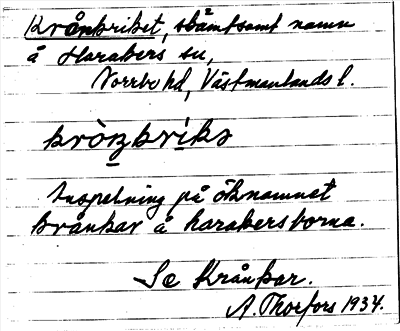 Krånkriket, skämtsamt namn
å Harakers sn,
Norrbo hd, Västmanlands l.
kròŋkrìkə
Anspelning på öknamnet
krånkar å harakersborna.
Se Krånkar.
A. Thorfors 1934.